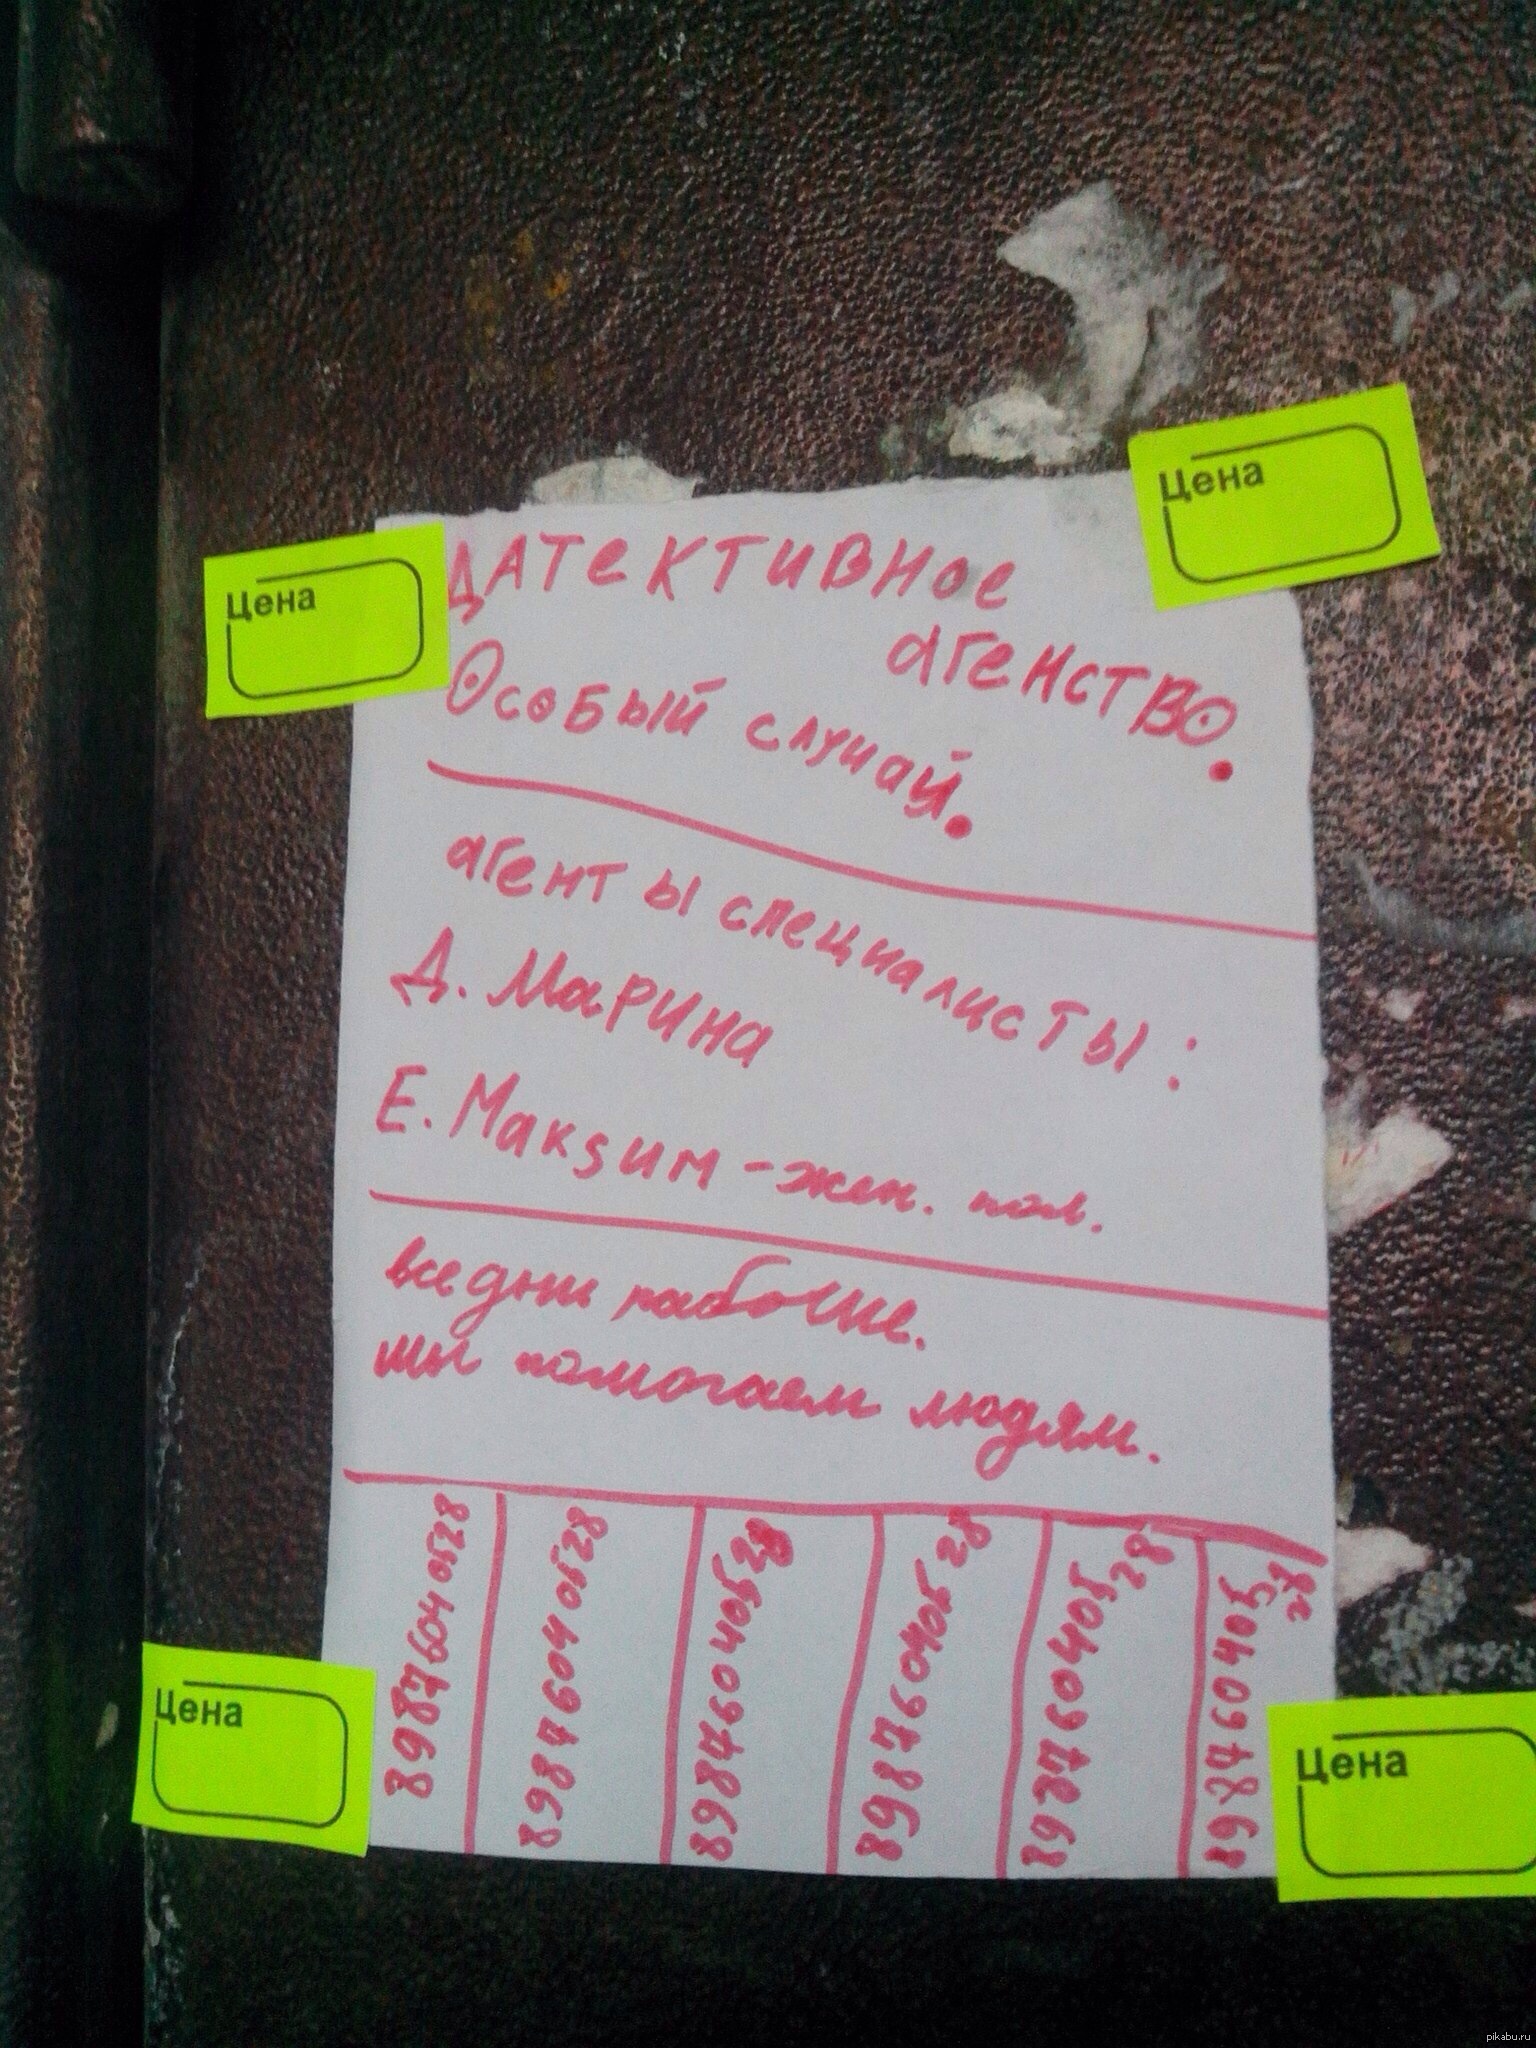 Цена
Цена
ДАТЕКТИВНОЕ
АГЕНСТВО.
Особый случай.
агенты специалисты:
Д. Марина
Е. Макsим - жен. пол.
все дни рабочие.
мы помогаем людям.
89876040528
89876040528
89876040528
89876040528
89876040528
89876040528
Цена
Цена
pikabu.ru